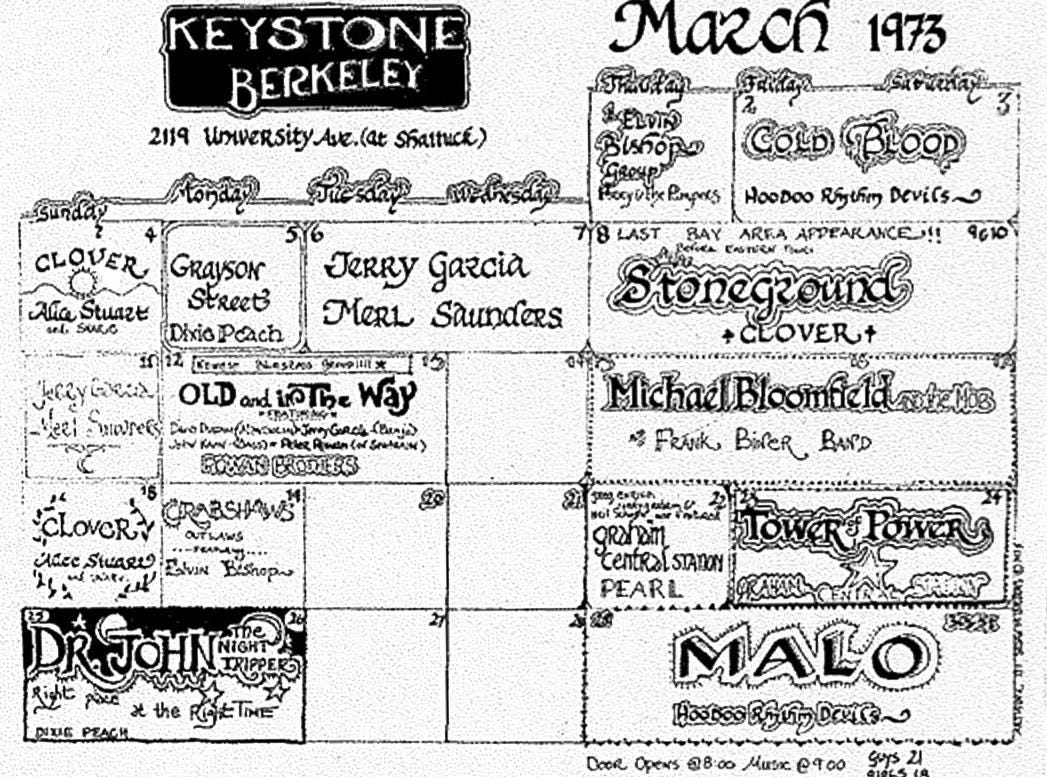 KEYSTONE
BERKELEY
2119 University Ave. (at Shattuck)
March 1973
Thursday Friday Saturday
Sunday Monday Tuesday Wednesday
ELVIN
Bishop
Group
2 3
COLD BLOOD
HooDoo Rhythm Devils
4
CLOVER
Alice Stuart
and
5
Grayson
Street
Dixie Peach
6 7
Jerry Garcia
Merl Saunders
8 LAST BAY AREA APPEARANCE!!! 9&10
Before Eastern Tour
Stoneground
CLOVER
11
Jerry Garcia
Merl Saunders
12 13
OLD and in The Way
FEATURING
Jerry Garcia (Banjo)
ROWAN BROTHERS
14
Michael Bloomfield and the
Frank Band
18
CLOVER
Alice Stuart
and
CRABSHAWS
OUTLAWS
Elvin Bishop
20
21
22
graham
central STATION
PEARL
23 24
Tower of Power
GRAHAM CENTRAL STATION
25 26
DR. JOHN The
NIGHT
TRIPPER
Right place
at the Right TIME
DIXIE PEACH
27
28
29
MALO
HooDoo Rhythm Devils
Door Opens @8:00 Music @9:00
Guys 21
GIRLS 18